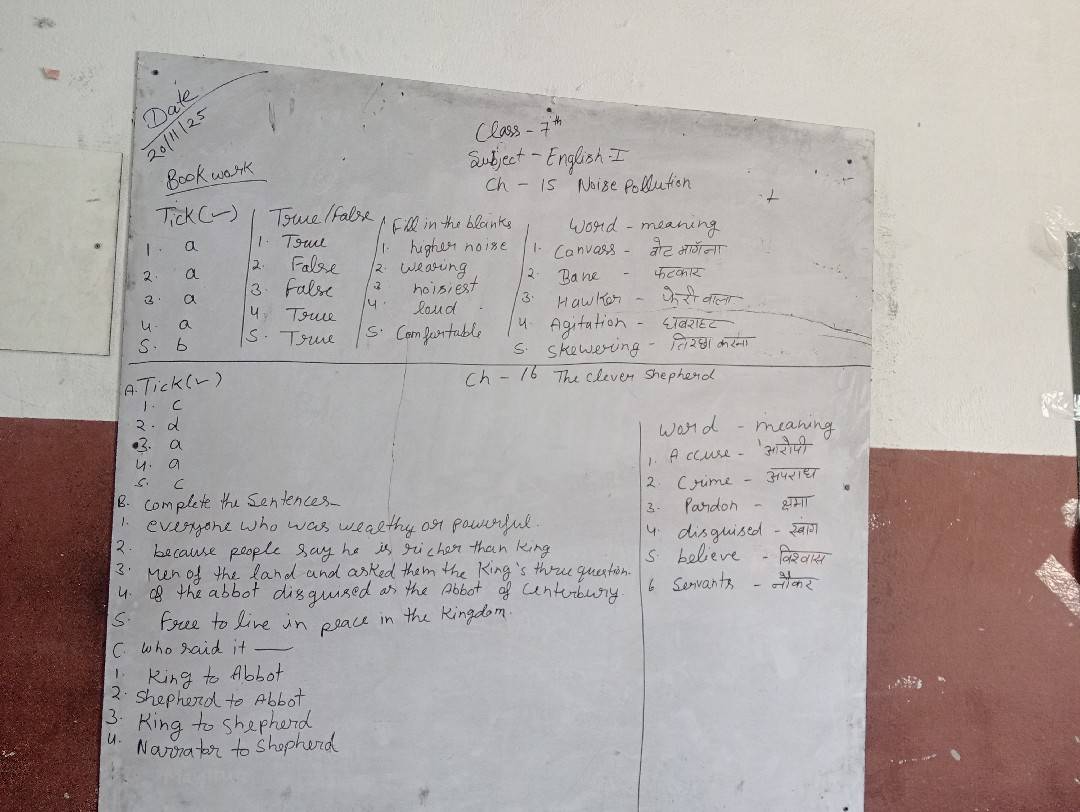 Date
20/11/25
Class - 7th
Subject - English-I
Ch - 15 Noise Pollution
Book work
Tick (✓)
1. a
2. a
3. a
4. a
5. b
True/False
1. True
2. False
3. False
4. True
5. True
Fill in the blanks
1. higher noise
2. wearing
3 noisiest
4. loud
5. Comfortable
Word - meaning
1. Canvass - वोट माँगना
2. Bane - फटकार
3. Hawker - फेरी वाला
4. Agitation - घबराहट
5. Skewering - तिरछा करना
Ch - 16 The clever Shepherd
A. Tick (✓)
1. c
2. d
3. a
4. a
5. c
B. Complete the Sentences
1. everyone who was wealthy or powerful.
2. because people say he is richer than King
3. Men of the land and asked them the King's three question.
4. of the abbot disguised as the Abbot of Centerbury.
5. Free to live in peace in the Kingdom.
C. Who said it —
1. King to Abbot
2. Shepherd to Abbot
3. King to Shepherd
4. Narrator to Shepherd
Word - meaning
1. Accuse - आरोपी
2. Crime - अपराध
3. Pardon - क्षमा
4. disguised - स्वांग
5. believe - विश्वास
6 Servants - नौकर